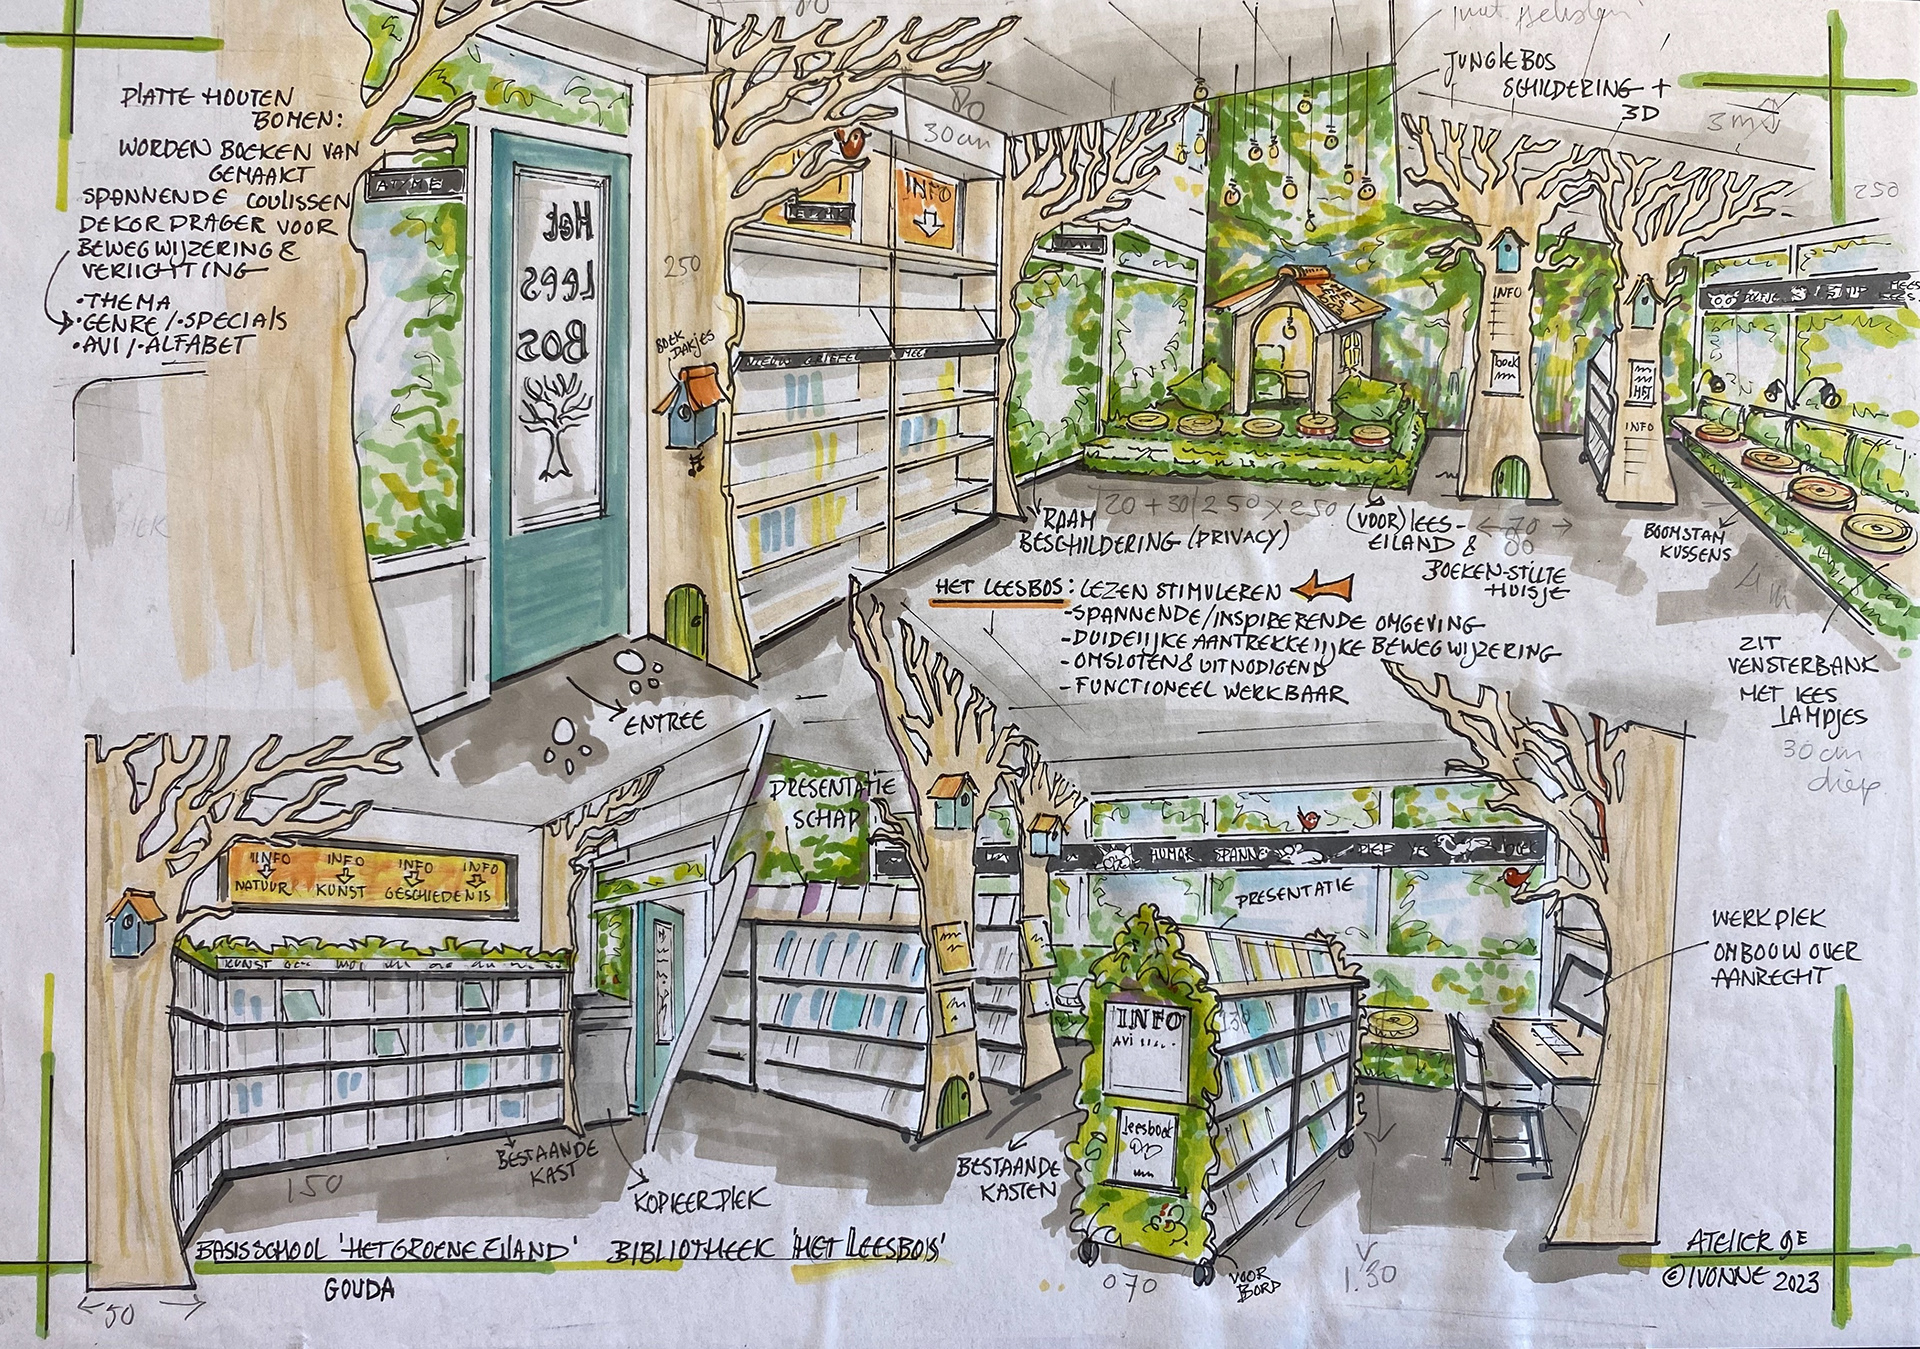 PLATTE HOUTEN
BOMEN:
WORDEN BOEKEN VAN
GEMAAKT
SPANNENDE COULISSEN
DEKOR DRAGER VOOR
BEWEGWIJZERING &
VERLICHTING
• THEMA
• GENRE / • SPECIALS
• AVI / • ALFABET
Het
Lees
Bos
250
BOEK
DAKJES
80
30cm
INFO
NIEUW GRIEFEL
MEE!
JUNGLEBOS
SCHILDERING +
3D
3m
250
INFO
boek
HET
INFO
20 + 30 | 250 X 250
RAAM
BESCHILDERING (PRIVACY)
(VOOR)LEES-
EILAND &
BOEKEN-STILTE
HUISJE
70
80
BOOMSTAM
KUSSENS
4m
ZIT
VENSTERBANK
MET LEES
LAMPJES
30cm
diep
HET LEESBOS: LEZEN STIMULEREN
- SPANNENDE/INSPIRERENDE OMGEVING
- DUIDELIJKE AANTREKKELIJKE BEWEGWIJZERING
- OMSLOTEN & UITNODIGEND
- FUNCTIONEEL WERKBAAR
ENTREE
INFO INFO INFO INFO
NATUUR KUNST GESCHIEDENIS
KUNST
PRESENTATIE
SCHAP
HUMOR SPANNE
PRESENTATIE
INFO
AVI
leesboek
130
WERKPLEK
OMBOUW OVER
AANRECHT
BESTAANDE
KAST
150
KOPIEERPLEK
BESTAANDE
KASTEN
BASISSCHOOL 'HET GROENE EILAND' BIBLIOTHEEK 'HET LEESBOS'
GOUDA
50
070
VOOR
BORD
1.30
ATELIER 9E
© IVONNE 2023